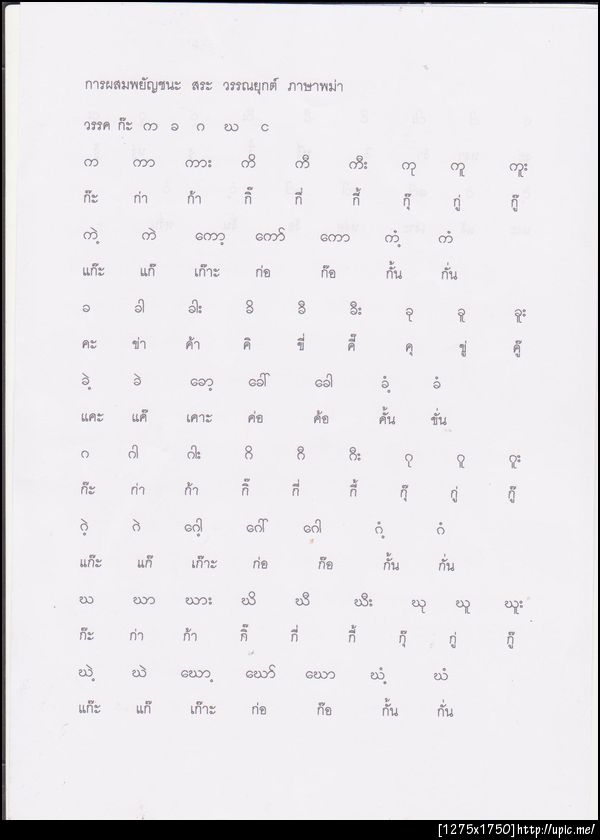 การผสมพยัญชนะ สระ วรรณยุกต์ ภาษาพม่า
วรรค ก๊ะ က ခ ဂ ဃ င
က ကာ ကား ကိ ကီ ကီး ကု ကူ ကူး
ก๊ะ ก่า ก้า กิ๊ กี่ กี้ กุ๊ กู่ กู๊
ကဲ့ ကဲ ကော့ ကော် ကော ကံ့ ကံ
แก๊ะ แก๊ เก๊าะ ก่อ ก๊อ กั้น กั่น
ခ ခါ ခါး ခိ ခီ ခီး ခု ခူ ခူး
คะ ข่า ค้า คิ ขี่ คี๊ คุ ขู่ คู๊
ခဲ့ ခဲ ခော့ ခေါ် ခေါ ခံ့ ခံ
แคะ แค๊ เคาะ ค่อ ค้อ คั้น ขั่น
ဂ ဂါ ဂါး ဂိ ဂီ ဂီး ဂု ဂူ ဂူး
ก๊ะ ก่า ก้า กิ๊ กี่ กี้ กุ๊ กู่ กู๊
ဂဲ့ ဂဲ ဂေါ့ ဂေါ် ဂေါ ဂံ့ ဂံ
แก๊ะ แก๊ เก๊าะ ก่อ ก๊อ กั้น กั่น
ဃ ဃာ ဃား ဃိ ဃီ ဃီး ဃု ဃူ ဃူး
ก๊ะ ก่า ก้า กิ๊ กี่ กี้ กุ๊ กู่ กู๊
ဃဲ့ ဃဲ ဃော့ ဃော် ဃော ဃံ့ ဃံ
แก๊ะ แก๊ เก๊าะ ก่อ ก๊อ กั้น กั่น
[1275x1750]http://upic.me/